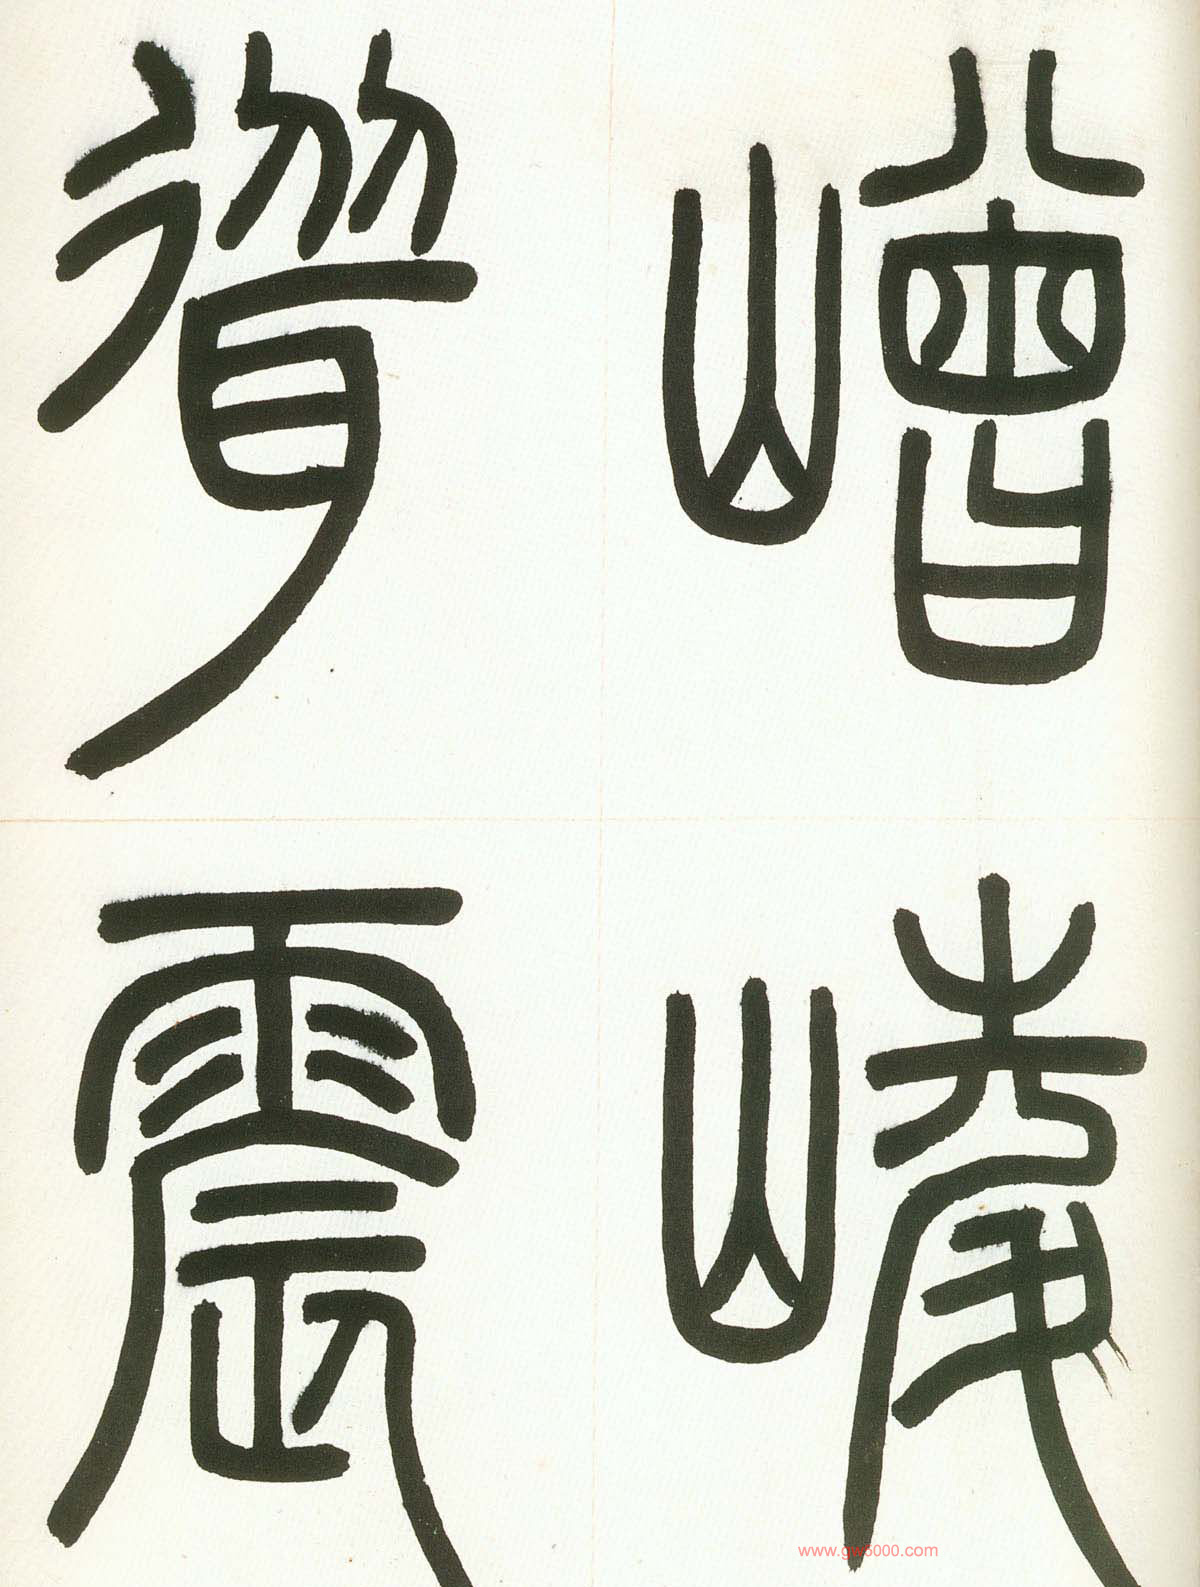 嶒崚
聳震
www.gw5000.com